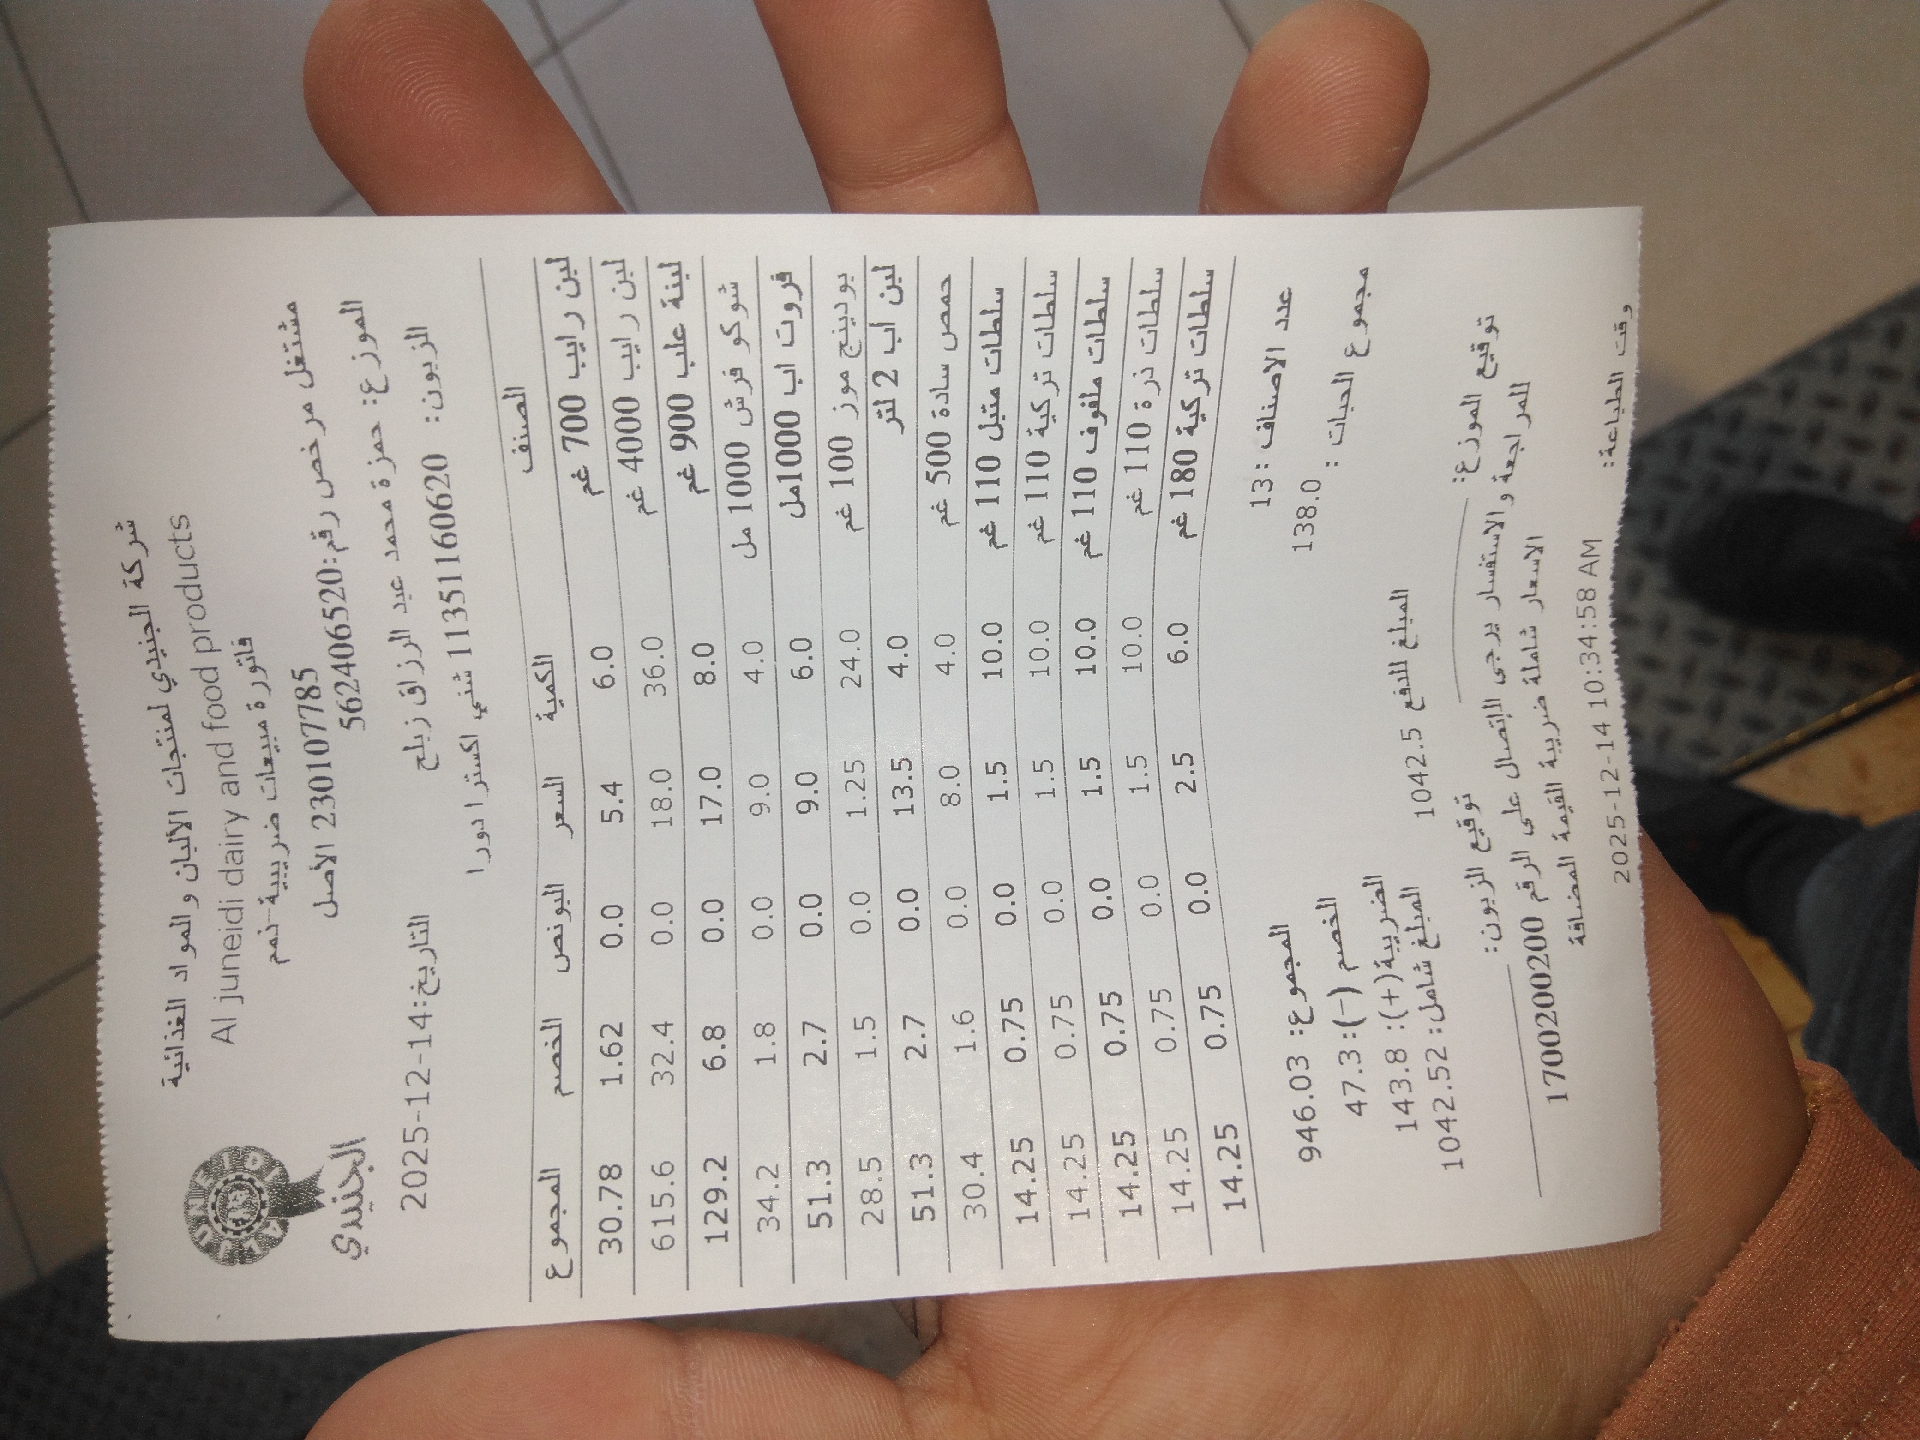 شركة الجنيدي لمنتجات الالبان والمواد الغذائية
Al juneidi dairy and food products
JUNEIDI
الجنيدي
فاتورة مبيعات ضريبية-ذمم
230107785 الأصل
مشتغل مرخص رقم:562406520
الموزع: حمزة محمد عبد الرزاق زبلح
التاريخ:2025-12-14
الزبون: 11351160620 شني اكسترا دورا
الصنف الكمية السعر البونص الخصم المجموع
لبن رايب 700 غم 6.0 5.4 0.0 1.62 30.78
لبن رايب 4000 غم 36.0 18.0 0.0 32.4 615.6
لبنة علب 900 غم 8.0 17.0 0.0 6.8 129.2
شوكو فرش 1000 مل 4.0 9.0 0.0 1.8 34.2
فروت اب 1000مل 6.0 9.0 0.0 2.7 51.3
بودينج موز 100 غم 24.0 1.25 0.0 1.5 28.5
لبن اب 2 لتر 4.0 13.5 0.0 2.7 51.3
حمص سادة 500 غم 4.0 8.0 0.0 1.6 30.4
سلطات متبل 110 غم 10.0 1.5 0.0 0.75 14.25
سلطات تركية 110 غم 10.0 1.5 0.0 0.75 14.25
سلطات ملفوف 110 غم 10.0 1.5 0.0 0.75 14.25
سلطات ذرة 110 غم 10.0 1.5 0.0 0.75 14.25
سلطات تركية 180 غم 6.0 2.5 0.0 0.75 14.25
عدد الاصناف :13 المجموع: 946.03
مجموع الحبات : 138.0 الخصم (-):47.3
الضريبة(+): 143.8
المبلغ للدفع 1042.5 المبلغ شامل: 1042.52
توقيع الموزع: توقيع الزبون:
للمراجعة والاستفسار يرجى الاتصال على الرقم 1700200200
الاسعار شاملة ضريبة القيمة المضافة
وقت الطباعة: 2025-12-14 10:34:58 AM